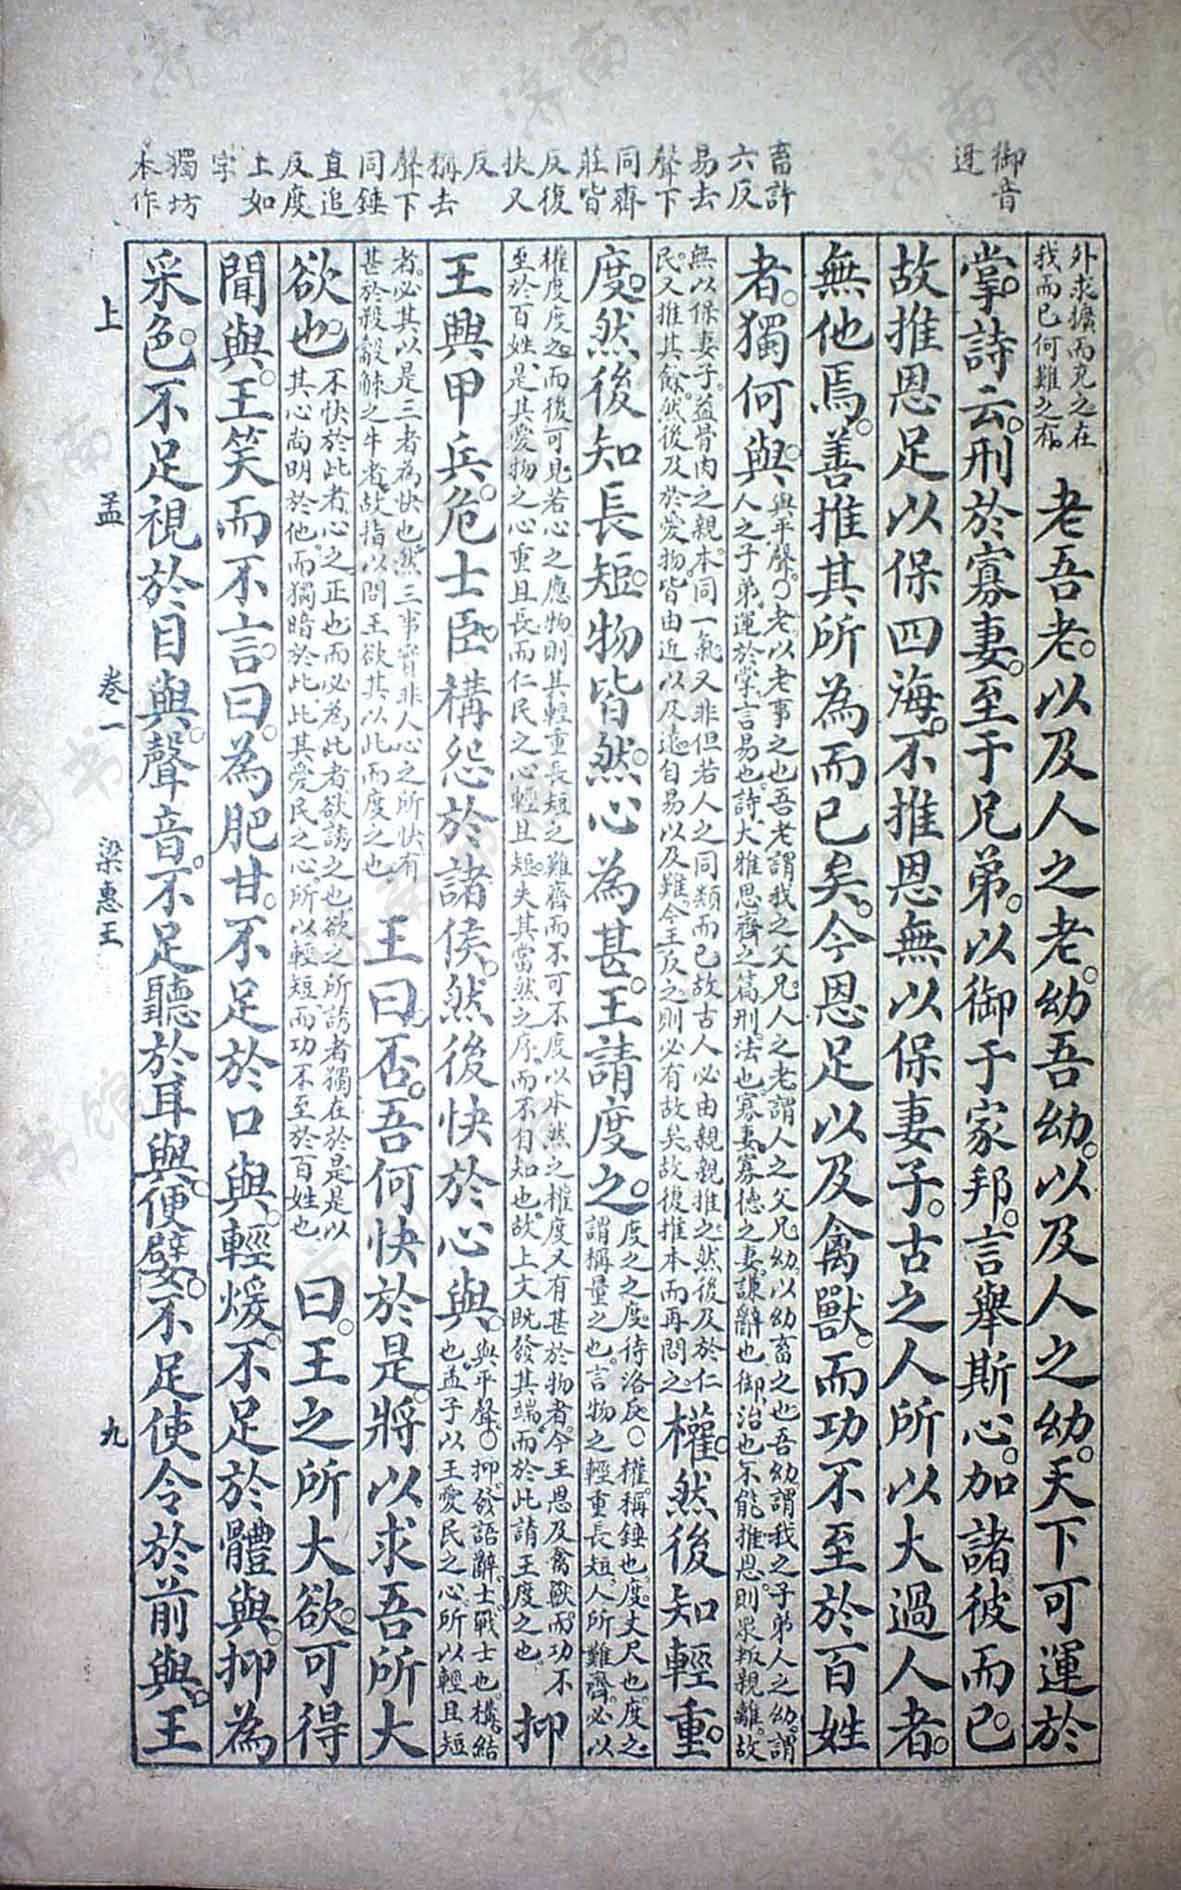 御音
迓
畜許
六反
易去
聲下
同齊
莊皆
反復
扶又
反
稱去
聲下
同錘
直追
反度
上如
字
獨坊
本作
外求擴而充之在
我而已何難之有。
老吾老。以及人之老。幼吾幼。以及人之幼。天下可運於
掌。詩云。刑於寡妻。至于兄弟。以御于家邦。言舉斯心。加諸彼而已。
故推恩足以保四海。不推恩無以保妻子。古之人所以大過人者。
無他焉。善推其所為而已矣。今恩足以及禽獸。而功不至於百姓
者。獨何與。
與平聲。○老。以老事之也。吾老。謂我之父兄。人之老。謂人之父兄。幼。以幼畜之也。吾幼。謂我之子弟。人之幼。謂
人之子弟。運於掌。言易也。詩。大雅思齊之篇。刑。法也。寡妻。寡德之妻。謙辭也。御。治也。不能推恩。則眾叛親離。故
無以保妻子。蓋骨肉之親。本同一氣。又非但若人之同類而已。故古人必由親親推之。然後及於仁
民。又推其餘。然後及於愛物。皆由近以及遠。自易以及難。今王反之。則必有故矣。故復推本而再問之。
權。然後知輕重。
度。然後知長短。物皆然。心為甚。王請度之。
度之之度。待洛反。○權。稱錘也。度。丈尺也。度之。
謂稱量之也。言物之輕重長短。人所難齊。必以
權度度之。而後可見。若心之應物。則其輕重長短之難齊。而不可不度以本然之權度。又有甚於物者。今王恩及禽獸。而功不
至於百姓。是其愛物之心重且長。而仁民之心輕且短。失其當然之序。而不自知也。故上文既發其端。而於此請王度之也。
抑
王興甲兵。危士臣。構怨於諸侯。然後快於心與。
與平聲。○抑。發語辭。士。戰士也。構。結
也。孟子以王愛民之心。所以輕且短
者。必其以是三者為快也。然三事實非人心之所快。有
甚於殺觳觫之牛者。故指以問王。欲其以此而度之也。
王曰。否。吾何快於是。將以求吾所大
欲也。
不快於此者。心之正也。而必為此者。欲誘之也。欲之所誘者。獨在於是。是以
其心尚明於他。而獨暗於此。此其愛民之心。所以輕短。而功不至於百姓也。
曰。王之所大欲。可得
聞與。王笑而不言。曰。為肥甘。不足於口與。輕煖。不足於體與。抑為
采色。不足視於目與。聲音。不足聽於耳與。便嬖。不足使令於前與。王
上 孟 卷一 梁惠王 九